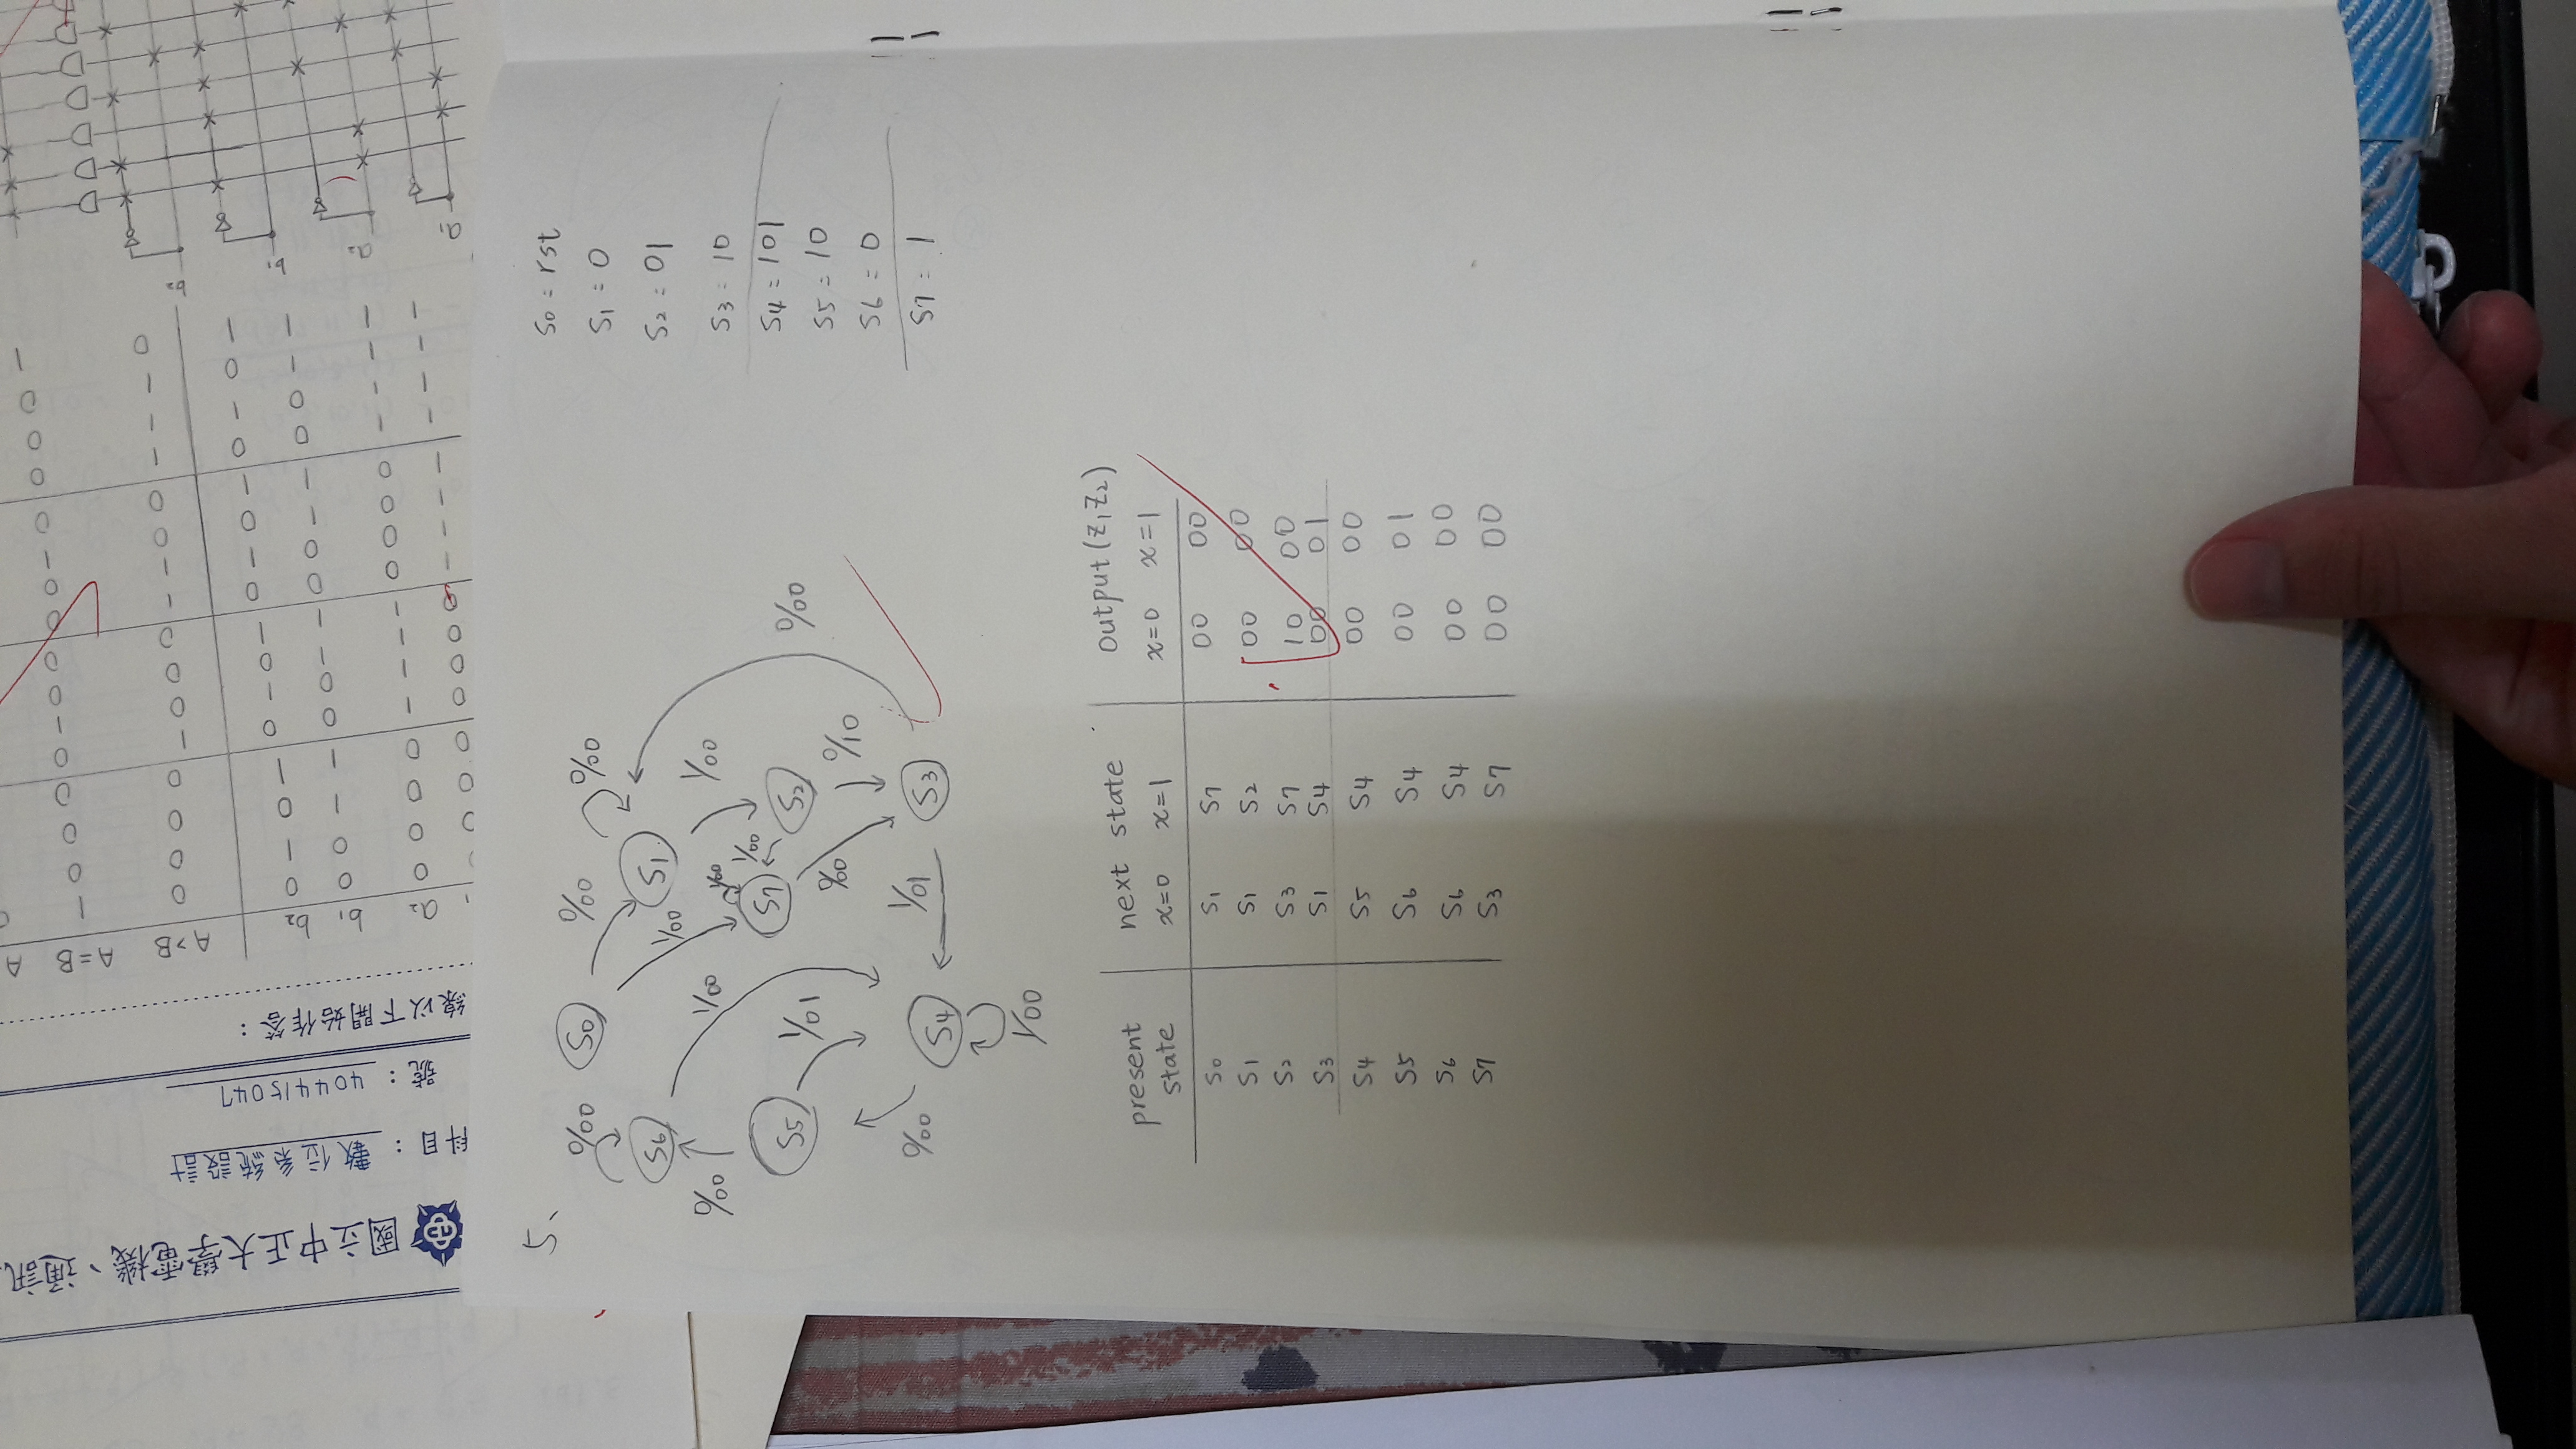 國立中正大學電機、通訊
科目：數位系統設計
號：404415047
線以下開始作答：
a₂ b₁ b₂ A>B A=B A
0 0 0 0 1
0 0 1 0 0
0 1 0 0 0
0 1 1 0 0
1 0 0 1 0
1 0 1 0 1
1 1 0 0 0
1 1 1 0 0
0 0 0 1 0
0 0 1 1 0
0 1 0 0 1
0 1 1 0 0
1 0 0 1 0
1 0 1 1 0
1 1 0 1 0
1 1 1 0 1
5、
S₀ 0/00 0/00 0/00
S₆ S₁
1/00 1/00 1/00
0/00 1/00 1/00
S₅ S₇ S₂
1/01 0/00 0/10 0/00
0/00 S₄ 1/01 S₃
1/00
S₀ = rst
S₁ = 0
S₂ = 01
S₃ = 10
S₄ = 101
S₅ = 10
S₆ = 0
S₇ = 1
present state next state output (Z₁Z₂)
x=0 x=1 x=0 x=1
S₀ S₁ S₇ 00 00
S₁ S₁ S₂ 00 00
S₂ S₃ S₇ 10 00
S₃ S₁ S₄ 00 01
S₄ S₅ S₄ 00 00
S₅ S₆ S₄ 00 01
S₆ S₆ S₄ 00 00
S₇ S₃ S₇ 00 00